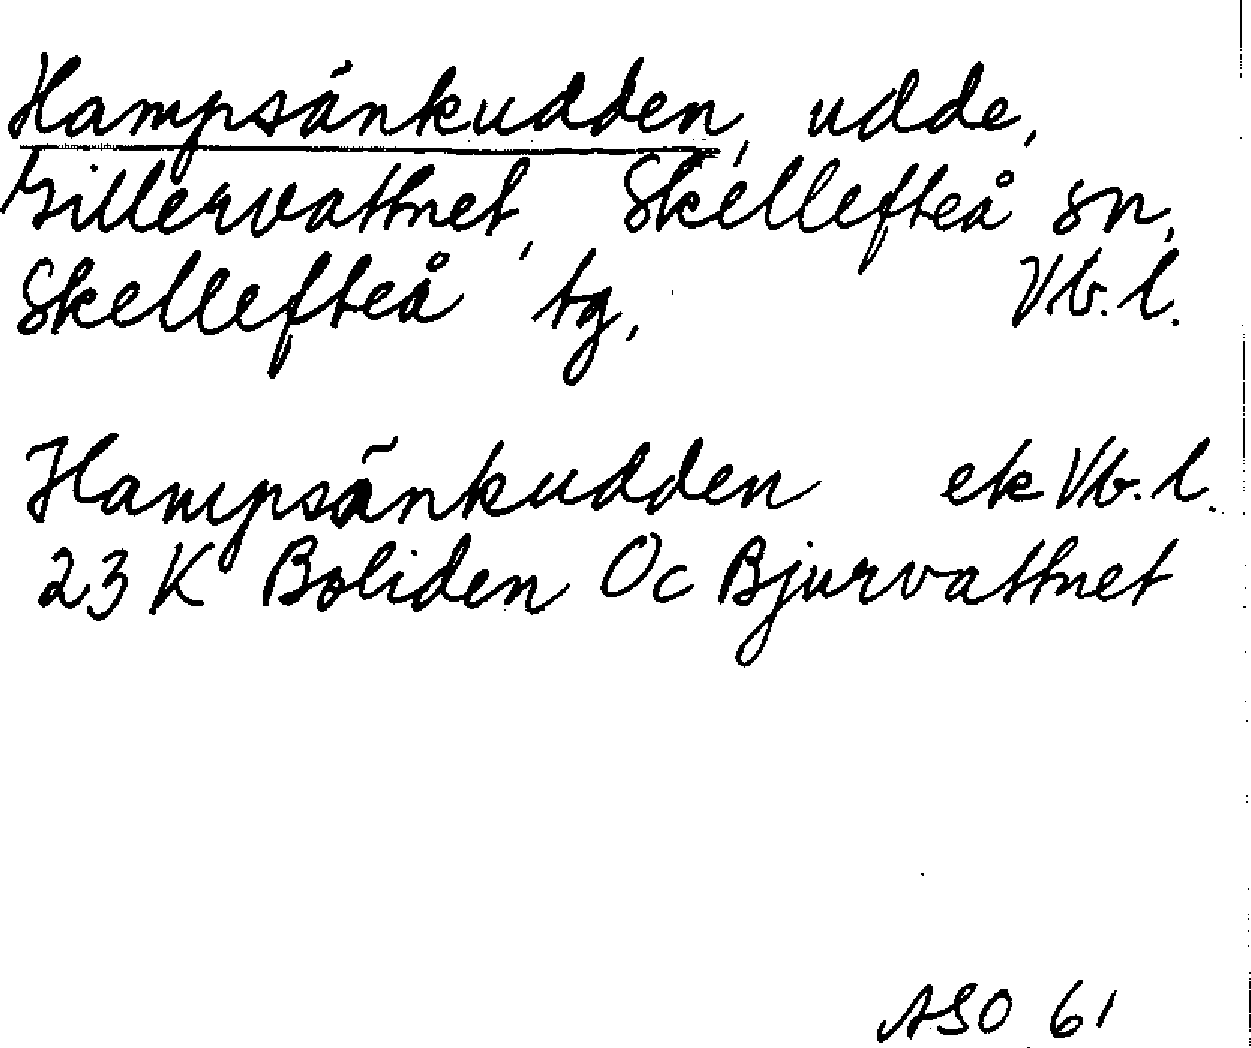 Hampsänkudden, udde,
Gillervattnet, Skellefteå sn,
Skellefteå tg, Vb. l.
Hampsänkudden ek Vb. l.
23 K Boliden Oc Bjurvattnet
ASO 61